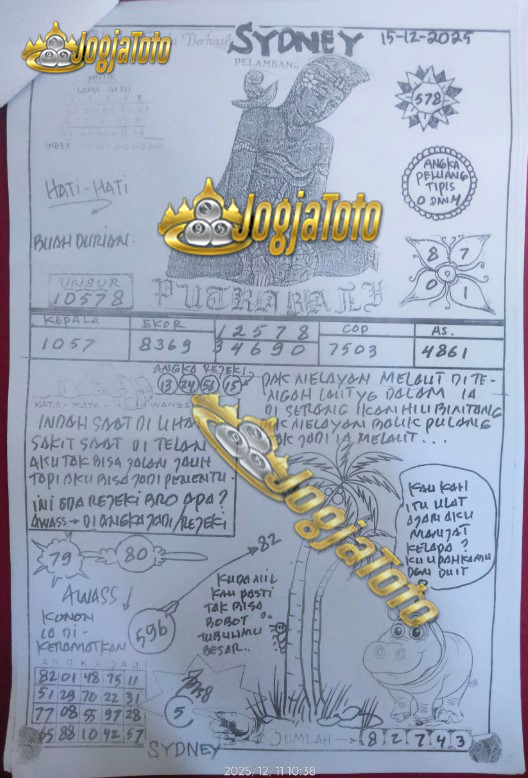 JogjaToto
Berhasil
SYDNEY
15-12-2025
PELAMBANG
578
INDEX
ANGKA
PELUANG
TIPIS
0 DNM
HATI-HATI
JogjaToto
BUAH DURIAN.
8 7
0 1
UNSUR
10578
PUTRA BALI
KEPALA
EKOR
12578
COP
AS.
1057
8369
34690
7503
4861
ANGKA REJEKI
13 24 51 15
PAK NELAYAN MELAUT DI TE-
NGAH LAUT YG DALAM IA
DI SERANG IKAN HIU BINTANG
NELAYAN BALIK PULANG
JADI IA MELAUT...
INDAH SAAT DI LIHA
SAKIT SAAT DI TELAN
AKU TAK BISA JALAN JAUH
TAPI AKU BISA JADI PENENTU.
INI EDA REJEKI BRO APA?
AWASS → DI ANGKA JADI/REJEKI
JogjaToto
KAU KAH
ITU ULAT
AJARI AKU
MANJAT
KELAPA?
KU UPAHKAMU
DGN DUIT
79
80
82
AWASS!
596
KUDANIL
KAU PASTI
TAK BISA
BOBOT
TUBUHMU
BESAR..
KONON
IA DI-
KERAMATKAN
ANGKA JADI
82 01 48 75 11
51 29 70 22 31
77 08 55 97 28
65 88 10 42 57
5
SYDNEY
JUMLAH → 8 2 7 4 3
2025/12/11 10:38